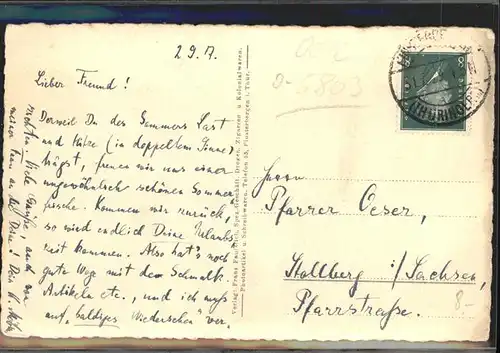 29.7.
Lieber Freund!
Derweil Du des Sommers Last
und Hitze (in doppeltem Sinne)
trägst, freuen wir uns einer
ungewöhnlich schönen Sommer
frische. Kommen wir zurück,
so wird endlich Deine Urlaubs
zeit kommen. Also hat's noch
gute Wege mit den Schmalk.
Artikeln etc., und ich muss
auf "baldiges Wiedersehen" ver-
zichten. Viele Grüße, auch von
meiner Frau an
Verlag: Franz
Finsterbergen i. Thür.
Herrn
Pfarrer Oeser,
Stollberg i/Sachsen,
Pfarrstraße.
8
8-